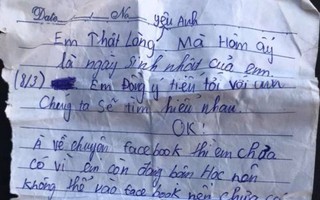 Date / No yêu Anh
Em Thật Lòng. Mà Hôm ấy
là ngày sinh nhật của em.
(8/3) Em Đồng ý tiến tới với anh
Chúng ta sẽ tìm hiểu nhau.
OK!
À về chuyện facebook thì em chưa
có vì em còn đang bận Học nên
không thể vào face book nên chưa có